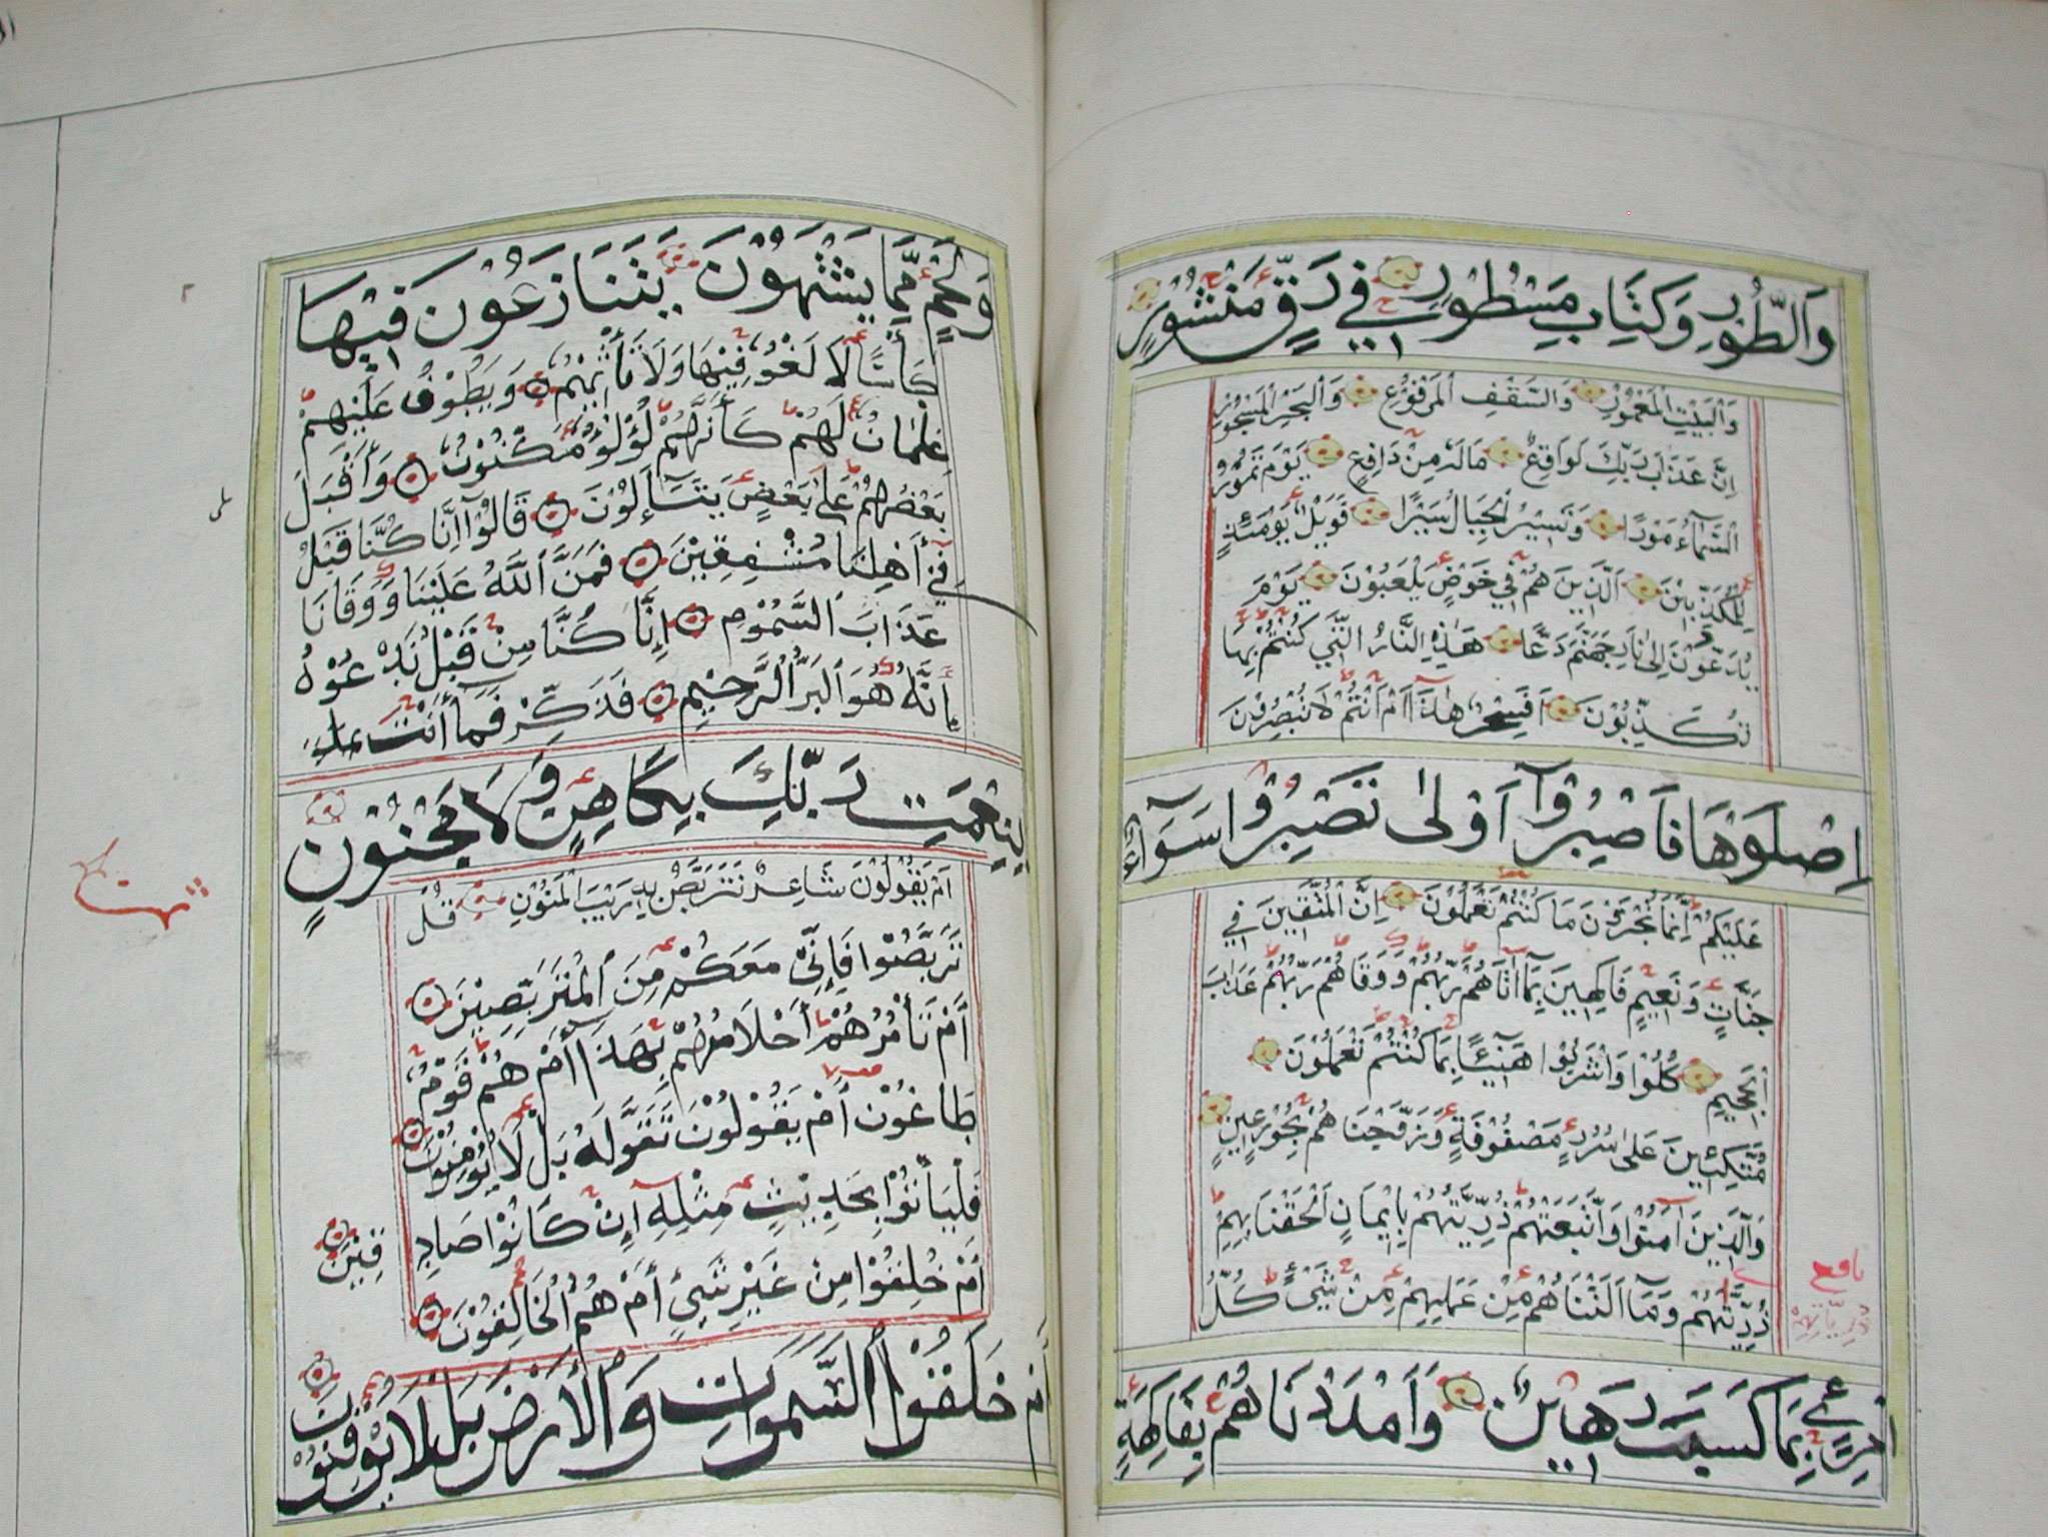 وَالطُّورِ وَكِتَابٍ مَسْطُورٍ فِي رَقٍّ مَنْشُورٍ
وَالْبَيْتِ الْمَعْمُورِ وَالسَّقْفِ الْمَرْفُوعِ وَالْبَحْرِ الْمَسْجُورِ
اِنَّ عَذَابَ رَبِّكَ لَوَاقِعٌ مَالَهُ مِنْ دَافِعٍ يَوْمَ تَمُورُ
السَّمَآءُ مَوْرًا وَتَسِيْرُ الْجِبَالُ سَيْرًا فَوَيْلٌ يَوْمَئِذٍ
لِلْمُكَذِّبِيْنَ الَّذِينَ هُمْ فِي خَوْضٍ يَلْعَبُوْنَ يَوْمَ
يُدَعُّوْنَ اِلٰى نَارِ جَهَنَّمَ دَعًّا هٰذِهِ النَّارُ الَّتِي كُنْتُمْ بِهَا
تُكَذِّبُوْنَ اَفَسِحْرٌ هٰذَآ اَمْ اَنْتُمْ لَا تُبْصِرُوْنَ
اِصْلَوْهَا فَاصْبِرُوْآ اَوْ لَا تَصْبِرُوْا سَوَآءٌ
عَلَيْكُمْ اِنَّمَا تُجْزَوْنَ مَا كُنْتُمْ تَعْمَلُوْنَ اِنَّ الْمُتَّقِيْنَ فِي
جَنَّاتٍ وَنَعِيْمٍ فَاكِهِيْنَ بِمَآ اٰتَاهُمْ رَبُّهُمْ وَوَقَاهُمْ رَبُّهُمْ عَذَابَ
الْجَحِيْمِ كُلُوْا وَاشْرَبُوْا هَنِيْئًا بِمَا كُنْتُمْ تَعْمَلُوْنَ
مُتَّكِئِيْنَ عَلٰى سُرُرٍ مَصْفُوْفَةٍ وَزَوَّجْنَاهُمْ بِحُوْرٍ عِيْنٍ
وَالَّذِيْنَ اٰمَنُوْا وَاتَّبَعَتْهُمْ ذُرِّيَّتُهُمْ بِاِيْمَانٍ اَلْحَقْنَا بِهِمْ
ذُرِّيَّتَهُمْ وَمَآ اَلَتْنَاهُمْ مِنْ عَمَلِهِمْ مِنْ شَيْءٍ كُلُّ
امْرِئٍ بِمَا كَسَبَ رَهِيْنٌ وَاَمْدَدْنَاهُمْ بِفَاكِهَةٍ
وَلَحْمٍ مِمَّا يَشْتَهُوْنَ يَتَنَازَعُوْنَ فِيْهَا
كَأْسًا لَا لَغْوٌ فِيْهَا وَلَا تَأْثِيْمٌ وَيَطُوْفُ عَلَيْهِمْ
غِلْمَانٌ لَهُمْ كَأَنَّهُمْ لُؤْلُؤٌ مَكْنُوْنٌ وَأَقْبَلَ
بَعْضُهُمْ عَلٰى بَعْضٍ يَتَسَآءَلُوْنَ قَالُوْآ اِنَّا كُنَّا قَبْلُ
فِيْ أَهْلِنَا مُشْفِقِيْنَ فَمَنَّ اللّٰهُ عَلَيْنَا وَوَقَانَا
عَذَابَ السَّمُوْمِ إِنَّا كُنَّا مِنْ قَبْلُ نَدْعُوْهُ
إِنَّهُ هُوَ الْبَرُّ الرَّحِيْمُ فَذَكِّرْ فَمَآ أَنْتَ
بِنِعْمَتِ رَبِّكَ بِكَاهِنٍ وَلَا مَجْنُوْنٍ
اَمْ يَقُوْلُوْنَ شَاعِرٌ نَتَرَبَّصُ بِهِ رَيْبَ الْمَنُوْنِ قُلْ
تَرَبَّصُوْا فَإِنِّيْ مَعَكُمْ مِنَ الْمُتَرَبِّصِيْنَ
أَمْ تَأْمُرُهُمْ أَحْلَامُهُمْ بِهٰذَآ أَمْ هُمْ قَوْمٌ
طَاغُوْنَ أَمْ يَقُوْلُوْنَ تَقَوَّلَهُ بَلْ لَا يُؤْمِنُوْنَ
فَلْيَأْتُوْا بِحَدِيْثٍ مِثْلِهِ إِنْ كَانُوْا صَادِ
قِيْنَ
أَمْ خُلِقُوْا مِنْ غَيْرِ شَيْءٍ أَمْ هُمُ الْخَالِقُوْنَ
أَمْ خَلَقُوْا السَّمٰوَاتِ وَالْأَرْضَ بَلْ لَا يُوْقِنُوْنَ